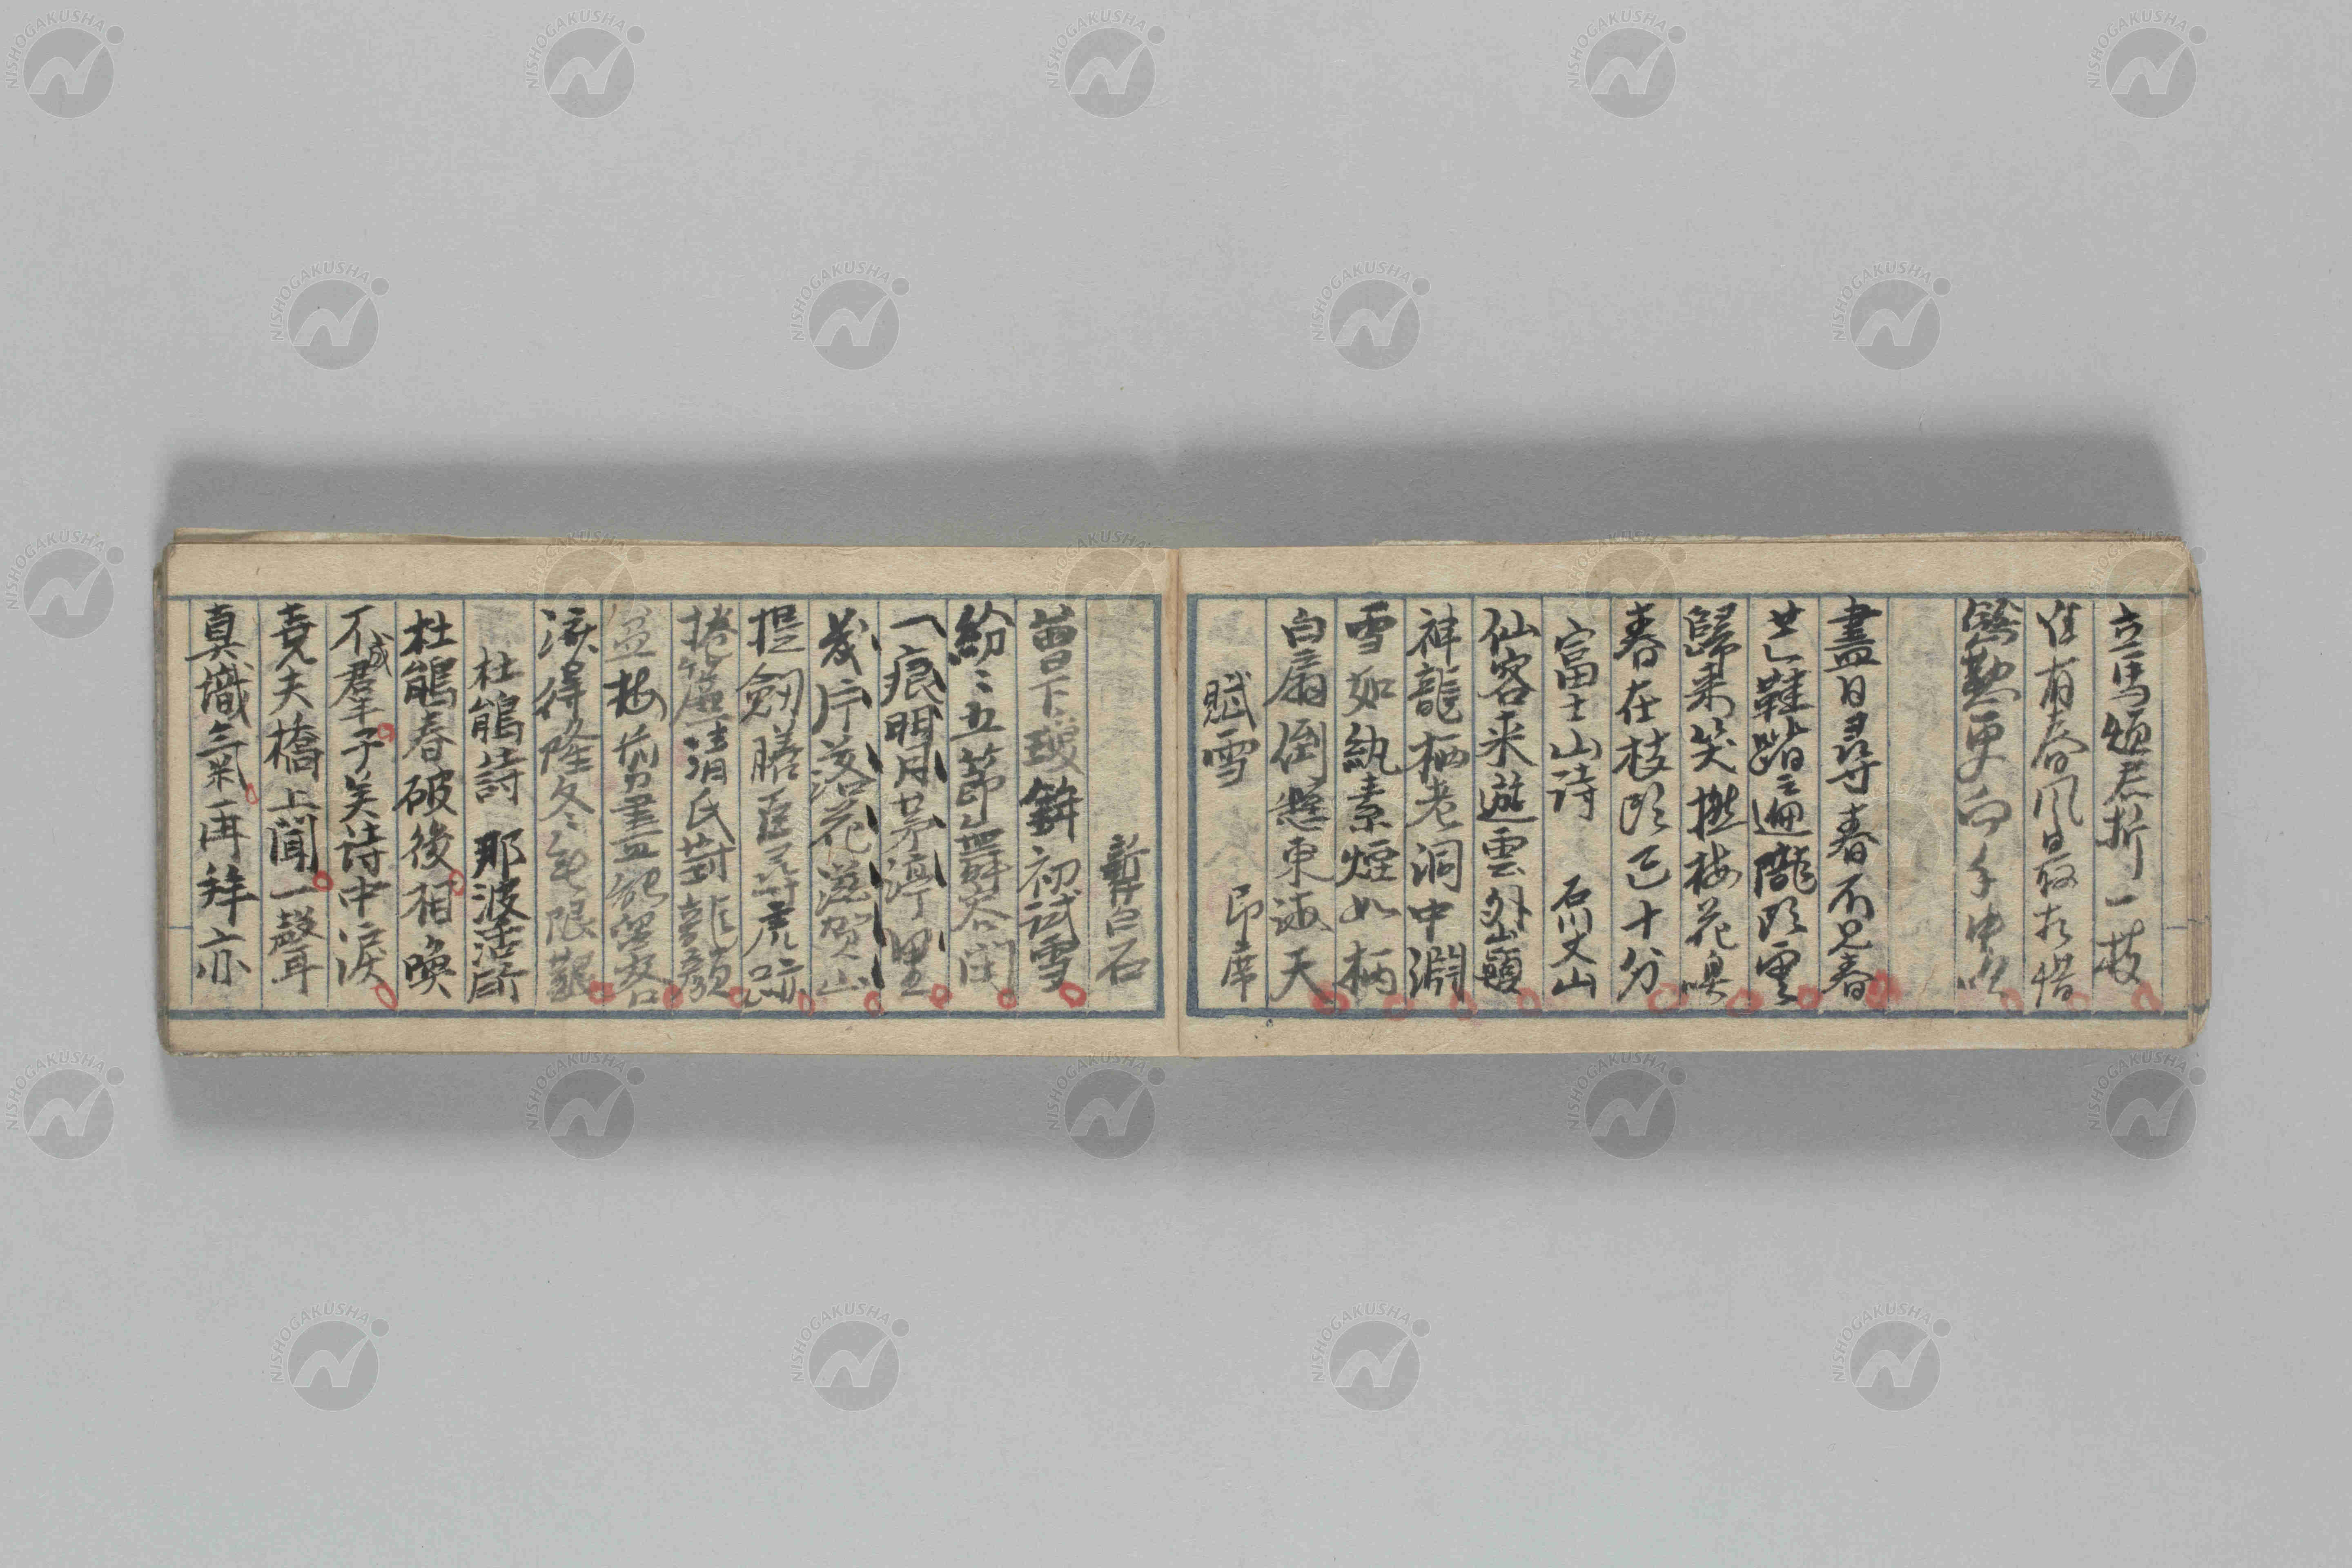 立馬煩君折一枝
唯有春風最相惜
慇懃更向手中吹
盡日尋春不見春
芒鞋踏遍隴頭雲
歸来笑撚梅花嗅
春在枝頭已十分
富士山詩 石川丈山
仙客来遊雲外巓
神龍栖老洞中淵
雪如紈素煙如柄
白扇倒懸東海天
賦雪 即席
新井白石
曽下瓊鉾初試雪
紛〻五節舞容閑
一痕明月茅渟里
幾片落花滋賀山
提劔膳臣尋虎跡
捲簾清氏對龍顔
盆梅剪盡能留客
済得隆冬無限艱
杜鵑詩 那波活所
杜鵑春破後相喚
不成群子美詩中涙
堯夫橋上聞一聲
真識氣再拜亦
NISHOGAKUSHA